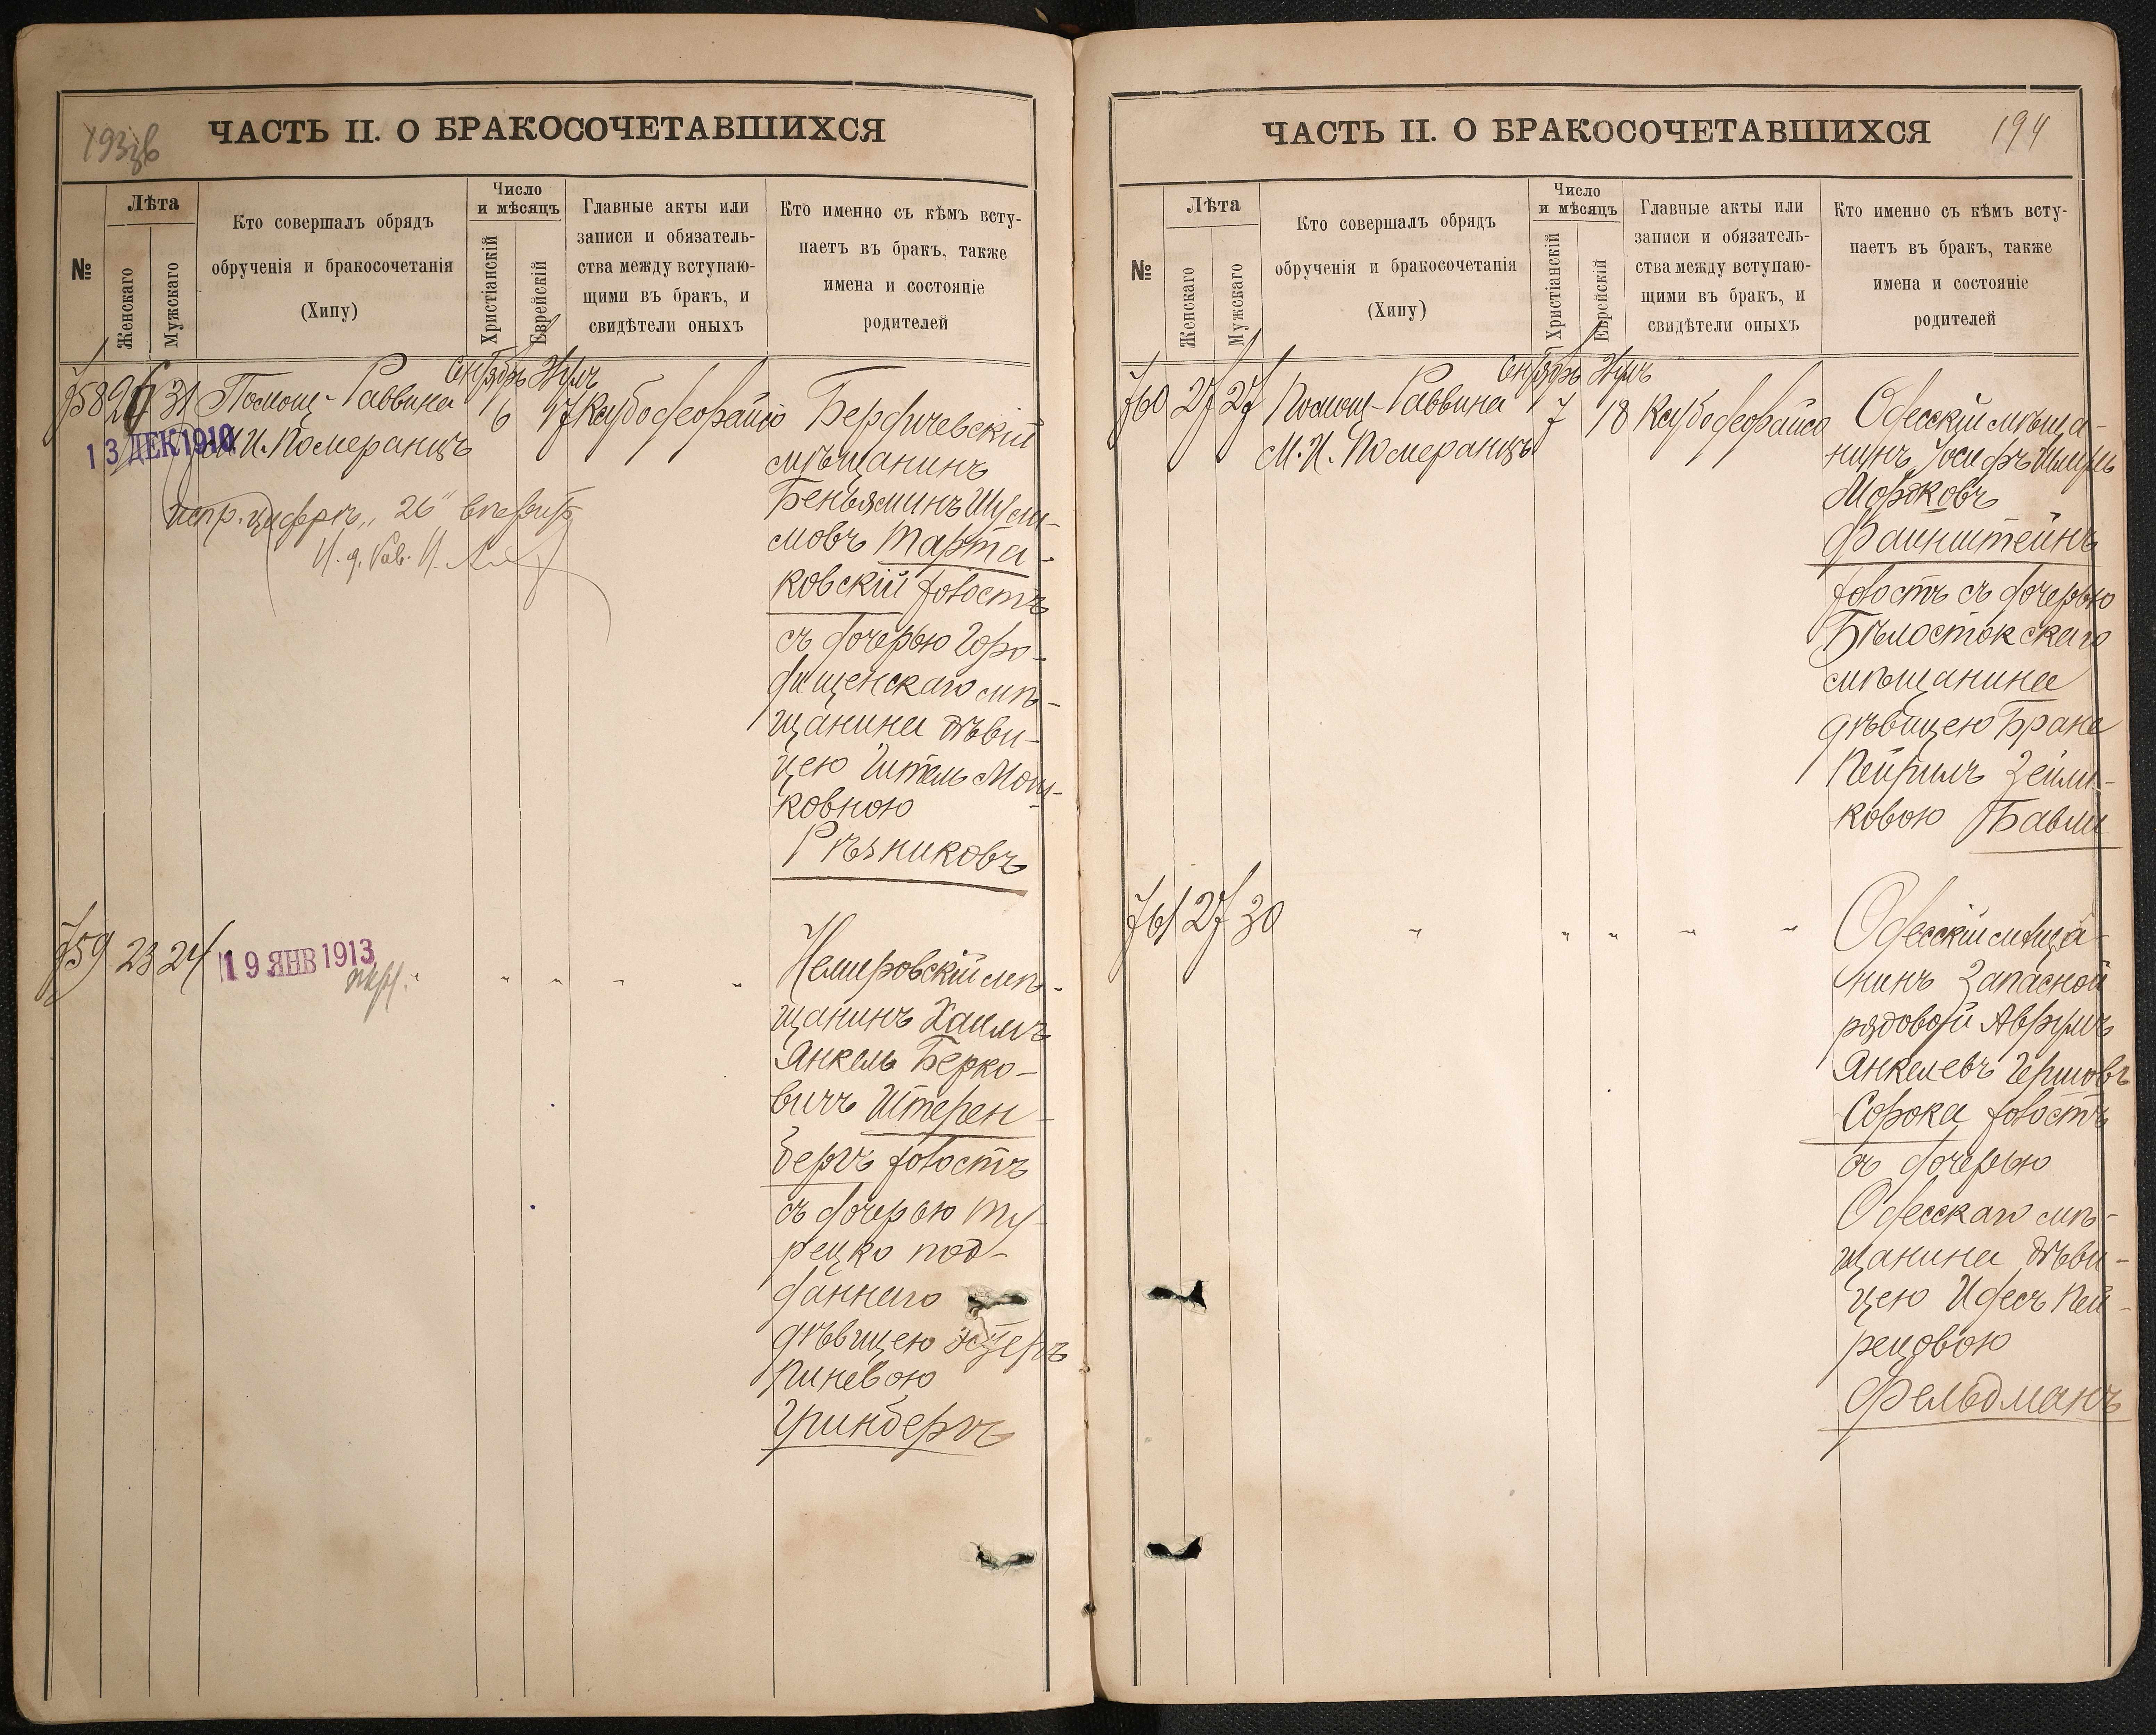 193об
ЧАСТЬ II. О БРАКОСОЧЕТАВШИХСЯ
№
Лѣта
Женскаго
Мужскаго
Кто совершалъ обрядъ
обрученія и бракосочетанія
(Хипу)
Число
и мѣсяцъ
Христіанскій
Еврейскій
Главные акты или
записи и обязатель-
ства между вступаю-
щими въ бракъ, и
свидѣтели оныхъ
Кто именно съ кѣмъ всту-
паетъ въ бракъ, также
имена и состояніе
родителей
758 26 31 Помощ-Раввина
М.И. Померанцъ
Сентябрь 6
Элулъ 17
13 ДЕК 1910
испр. цифръ „26" вѣрить
И. д. Рав.
Бердичевскій
мѣщанинъ
Беньяминъ Шули-
мовъ Марта-
ковскій холостъ
съ дочерью Горо-
дищенскаго мѣ-
щанина дѣви-
цею Гитель Мош-
ковною
Рѣзниковъ
759 23 24
19 ЯНВ 1913
Немировскій мѣ-
щанинъ Хаимъ
Янкель Берко-
вичъ Штерен-
бергъ холостъ
съ дочерью ту-
рецко под-
даннаго
дѣвицею Эстеръ
Пиневою
Гринбергъ
ЧАСТЬ II. О БРАКОСОЧЕТАВШИХСЯ
194
№
Лѣта
Женскаго
Мужскаго
Кто совершалъ обрядъ
обрученія и бракосочетанія
(Хипу)
Число
и мѣсяцъ
Христіанскій
Еврейскій
Главные акты или
записи и обязатель-
ства между вступаю-
щими въ бракъ, и
свидѣтели оныхъ
Кто именно съ кѣмъ всту-
паетъ въ бракъ, также
имена и состояніе
родителей
760 27 27 Помощ-Раввина
М.И. Померанцъ
Сентябрь 7
Элулъ 18
Одесскій мѣща-
нинъ Іосифъ Шмуль
Мордковъ
Файнштейнъ
холостъ съ дочерью
Бѣлостокскаго
мѣщанина
дѣвицею Брана
Пейрилъ Зейли-
ковою Бавли
761 27 30
Одесскій мѣща-
нинъ Запасной
рядовой Аврумъ
Янкелевъ Гершовъ
Сорока холостъ
съ дочерью
Одесскаго мѣ-
щанина дѣви-
цею Идесъ Пей-
рецовою
Фельдманъ